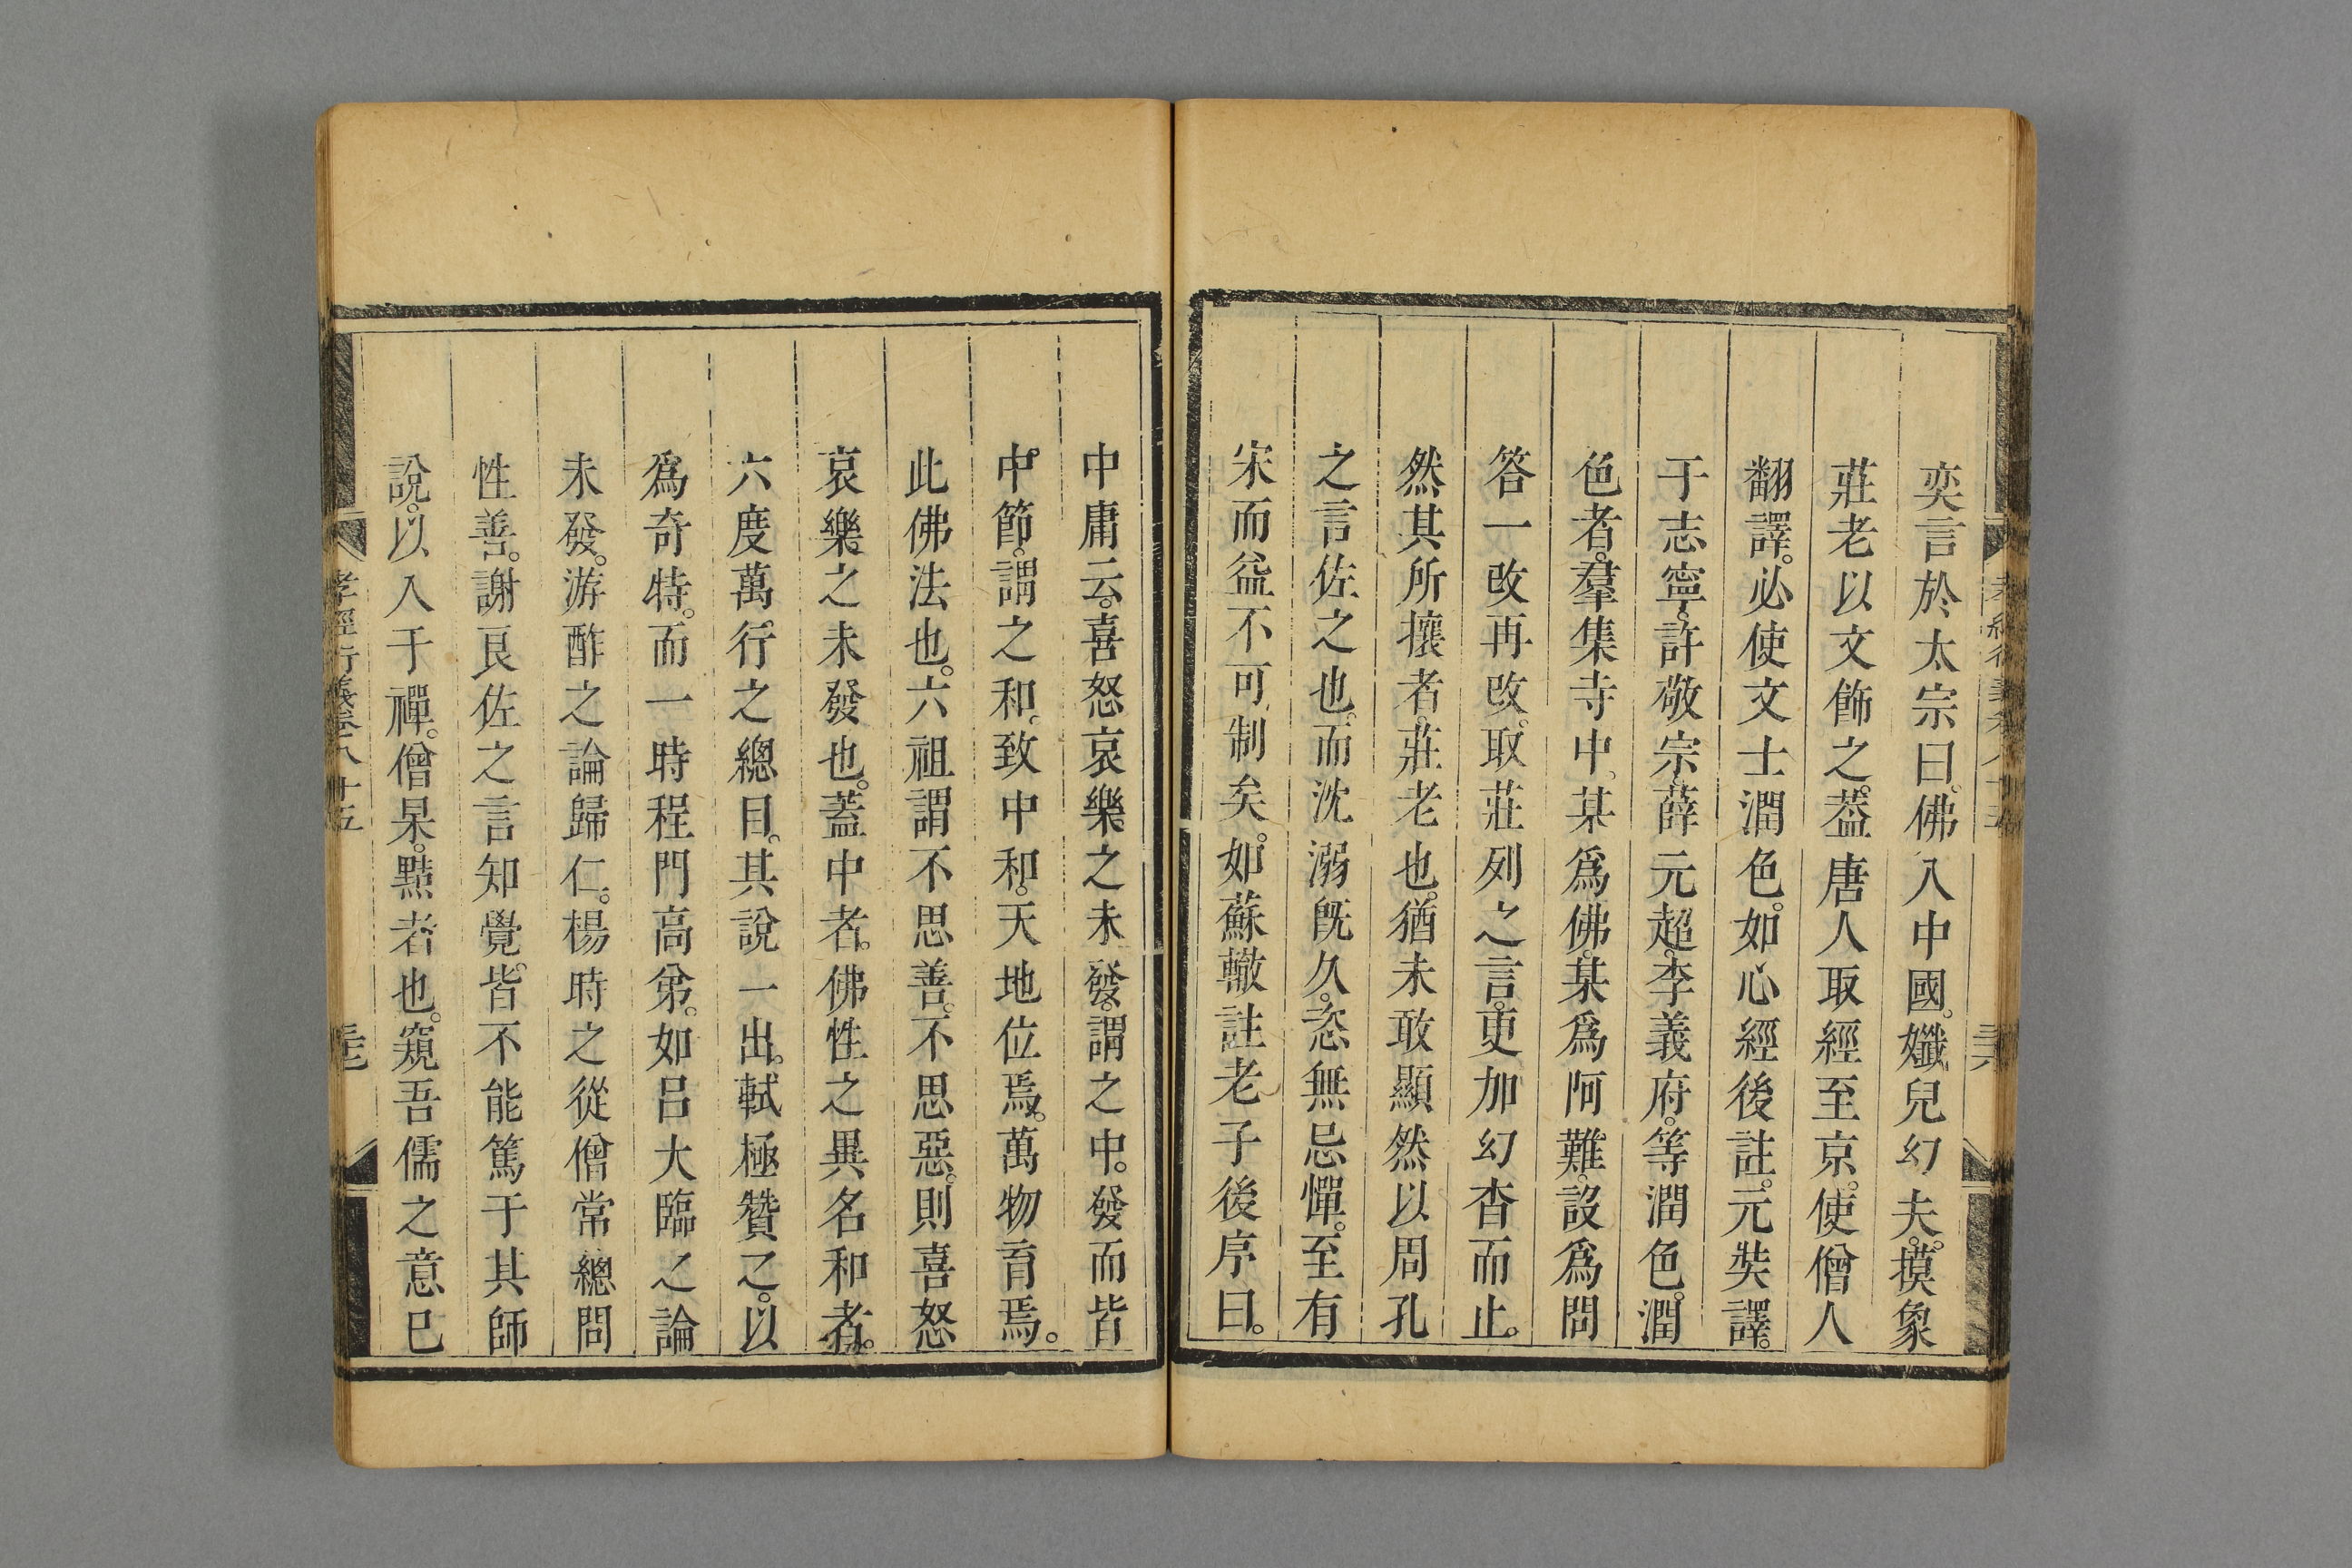 奕言於太宗曰。佛入中國。孅兒幻夫。摸象
莊老以文飾之。葢唐人取經至京。使僧人
翻譯。必使文士潤色。如心經後註。元奘譯。
于志寧。許敬宗。薛元超。李義府。等潤色。潤
色者。羣集寺中。某爲佛。某爲阿難。設爲問
答一改再改。取莊列之言。更加幻杳而止。
然其所攘者。莊老也。猶未敢顯然以周孔
之言佐之也。而沈溺既久。恣無忌憚。至有
宋而益不可制矣。如蘇轍註老子後序曰。
孝經衍義卷八十五
中庸云。喜怒哀樂之未發。謂之中。發而皆
中節。謂之和。致中和。天地位焉。萬物育焉。
此佛法也。六祖謂不思善。不思惡。則喜怒
哀樂之未發也。蓋中者。佛性之異名和者。
六度萬行之總目。其說一出。軾極贊之。以
爲奇特。而一時程門高弟。如呂大臨之論
未發。游酢之論歸仁。楊時之從僧常總問
性善。謝良佐之言知覺。皆不能篤于其師
說。以入于禪。僧杲。黠者也。窺吾儒之意已
孝經衍義卷八十五